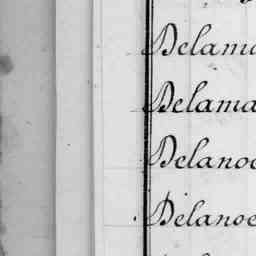 Delama
Delama
Delanoe
Delanoe